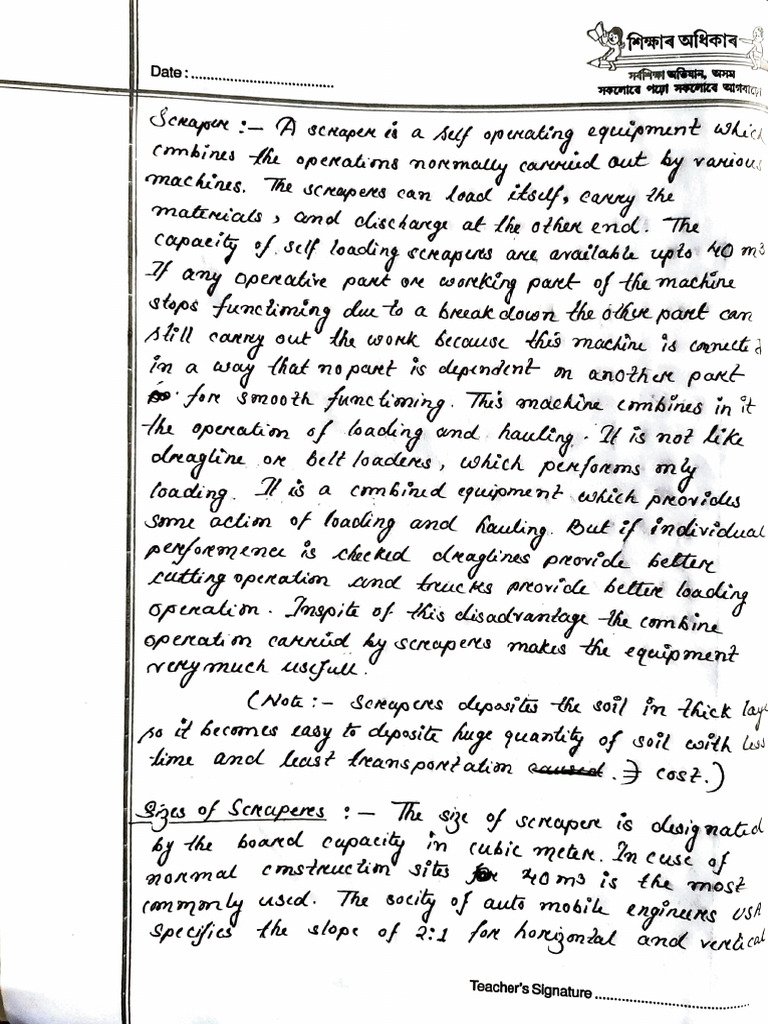 শিক্ষাৰ অধিকাৰ
সৰ্বশিক্ষা অভিযান, অসম
সকলোৱে পঢ়োঁ সকলোৱে আগবাঢ়োঁ
Date : ........................................
Scraper :- A scraper is a self operating equipment which
combines the operations normally carried out by various
machines. The scrapers can load itself, carry the
materials, and discharge at the other end. The
capacity of self loading scrapers are available upto 40 m³
If any operative part or working part of the machine
stops functioning due to a breakdown the other part can
still carry out the work because this machine is connected
in a way that no part is dependent on another part
for smooth functioning. This machine combines in it
the operation of loading and hauling. It is not like
dragline or belt loaders, which performs only
loading. It is a combined equipment which provides
some action of loading and hauling. But if individual
performence is checked draglines provide better
cutting operation and trucks provide better loading
operation. Inspite of this disadvantage the combine
operation carried by scrapers makes the equipment
very much usefull.
(Note :- Scrapers deposites the soil in thick lay
so it becomes easy to deposite huge quantity of soil with less
time and least transportation cost.)
Sizes of Scrapers :- The size of scraper is designated
by the board capacity in cubic meter. In case of
normal construction sites 40 m3 is the most
commonly used. The socity of auto mobile engineers USA
specifies the slope of 2:1 for horizontal and vertical
Teacher's Signature ........................................